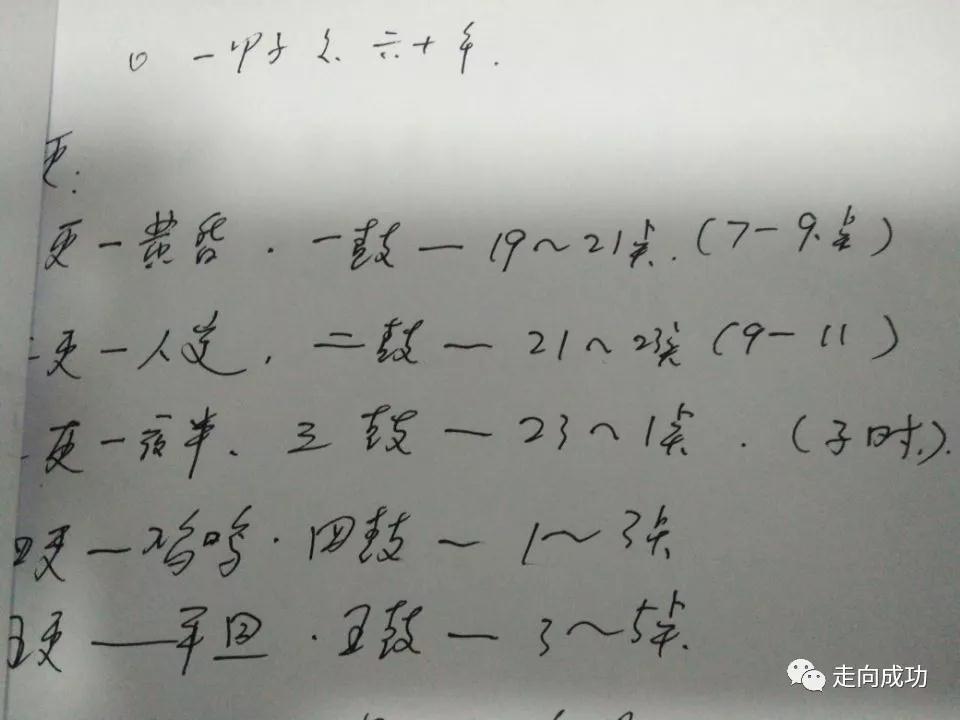 一甲子是六十年.
更:
更一黄昏.一鼓—19~21点.(7-9点)
二更一人定,二鼓—21~23点(9-11)
三更一夜半、三鼓—23~1点.(子时).
四更—鸡鸣.四鼓—1~3点
五更——平旦.五鼓—3~5点.
走向成功